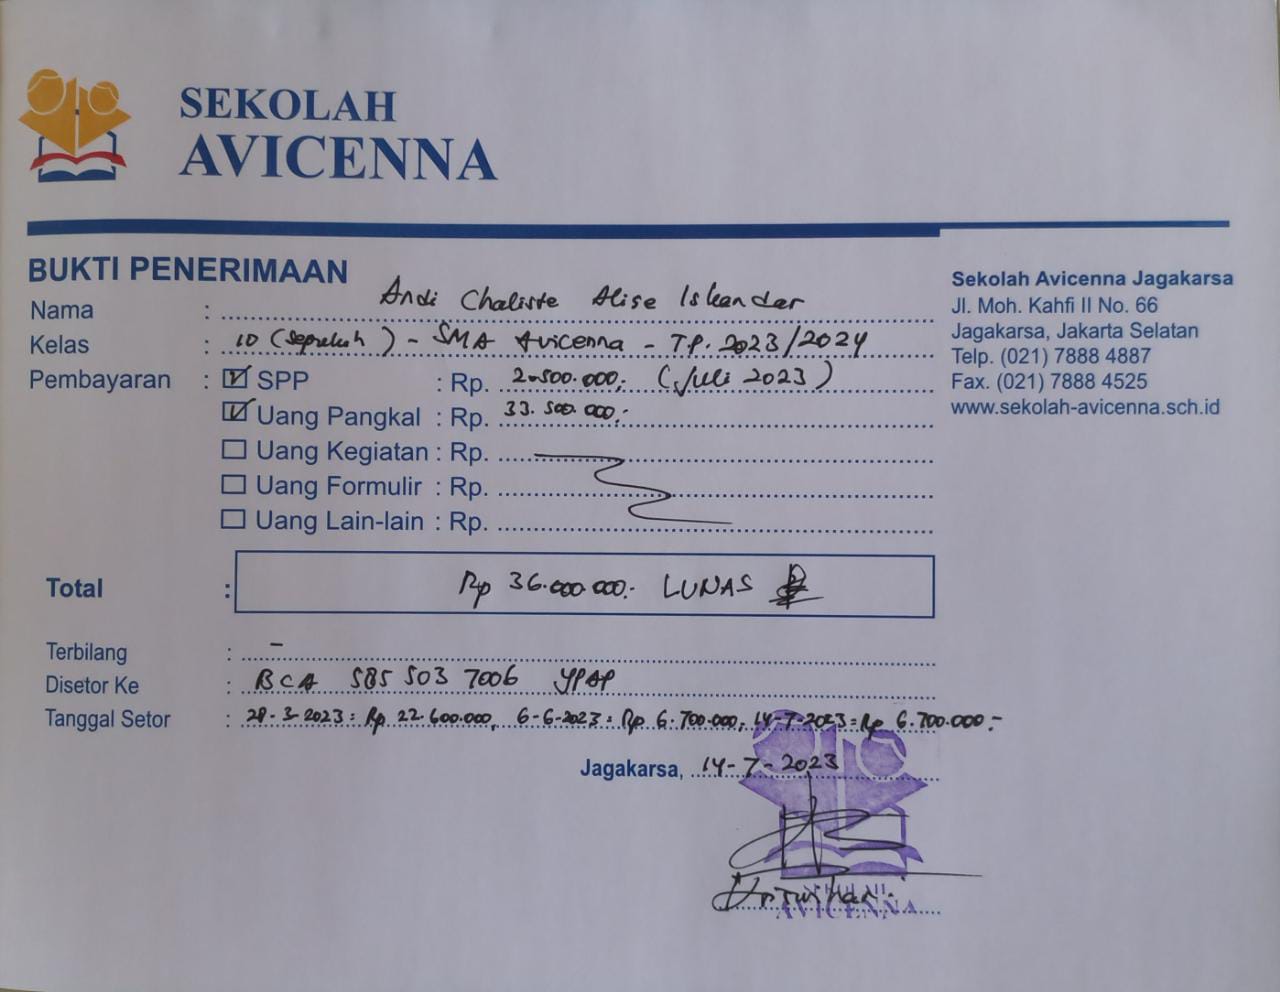 SEKOLAH
AVICENNA
BUKTI PENERIMAAN
Nama : Andi Chaliste Alise Iskandar
Kelas : 10 (Sepuluh) - SMA Avicenna - TP. 2023/2024
Pembayaran : SPP : Rp. 2.500.000,- (Juli 2023)
Uang Pangkal : Rp. 33.500.000,-
Uang Kegiatan : Rp.
Uang Formulir : Rp.
Uang Lain-lain : Rp.
Total : Rp 36.000.000.- LUNAS
Terbilang : -
Disetor Ke : BCA 585 503 7006 YPAP
Tanggal Setor : 28-3-2023 = Rp 22.600.000, 6-6-2023 = Rp 6.700.000, 14-7-2023 = Rp 6.700.000.-
Jagakarsa, 14-7-2023
SEKOLAH
AVICENNA
Sekolah Avicenna Jagakarsa
Jl. Moh. Kahfi II No. 66
Jagakarsa, Jakarta Selatan
Telp. (021) 7888 4887
Fax. (021) 7888 4525
www.sekolah-avicenna.sch.id